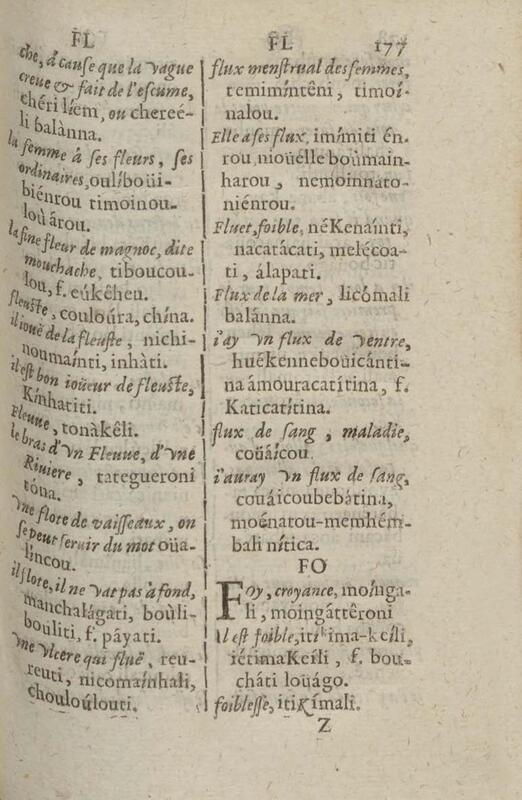 FL
che, à cause que la vague
creue & fait de l'escume,
chéri líem, ou chereé-
li balànna.
la femme à ses fleurs, ses
ordinaires, oulíboüi-
biénrou timoinou-
loù árou.
la fine fleur de magnoc, dite
mouchache, tiboucou-
lou, f. eúkêheu.
fleuste, couloúra, chína.
il ioüe de la fleuste, nichi-
noumaínti, inhàti.
il est bon ioüeur de fleuste,
Kínhatiti.
Fleuue, tonàkêli.
le bras d'vn Fleuue, d'vne
Riuiere, tategueroni
tóna.
vne flote de vaisseaux, on
se peut seruir du mot oüa-
líncou.
il flote, il ne vat pas à fond,
manchalágati, boùli-
bouliti, f. páyati.
vne vlcere qui fluë, reu-
reuti, nicomaínhali,
chouloúlouti.
FL 177
flux menstrual des femmes,
temimíntêni, timoí-
nalou.
Elle a ses flux, imímiti én-
rou, nioüélle boùmain-
harou, nemoinnaro-
niénrou.
Fluet, foible, néKenaínti,
nacatácati, melécoa-
ti, álapati.
Flux de la mer, licómali
balánna.
i'ay vn flux de ventre,
huékenneboüicánti-
na ámouracatítina, f.
Katicatítina.
flux de sang, maladie,
coüáícou.
i'auray vn flux de sang,
couáicoubebátina,
moénatou-memhém-
bali nítica.
FO
Foy, croyance, moínga-
li, moingáttêroni
Il est foible, itikima-keíli,
iétimaKeíli, f. bou-
cháti loüágo.
foiblesse, itiKímali.
Z